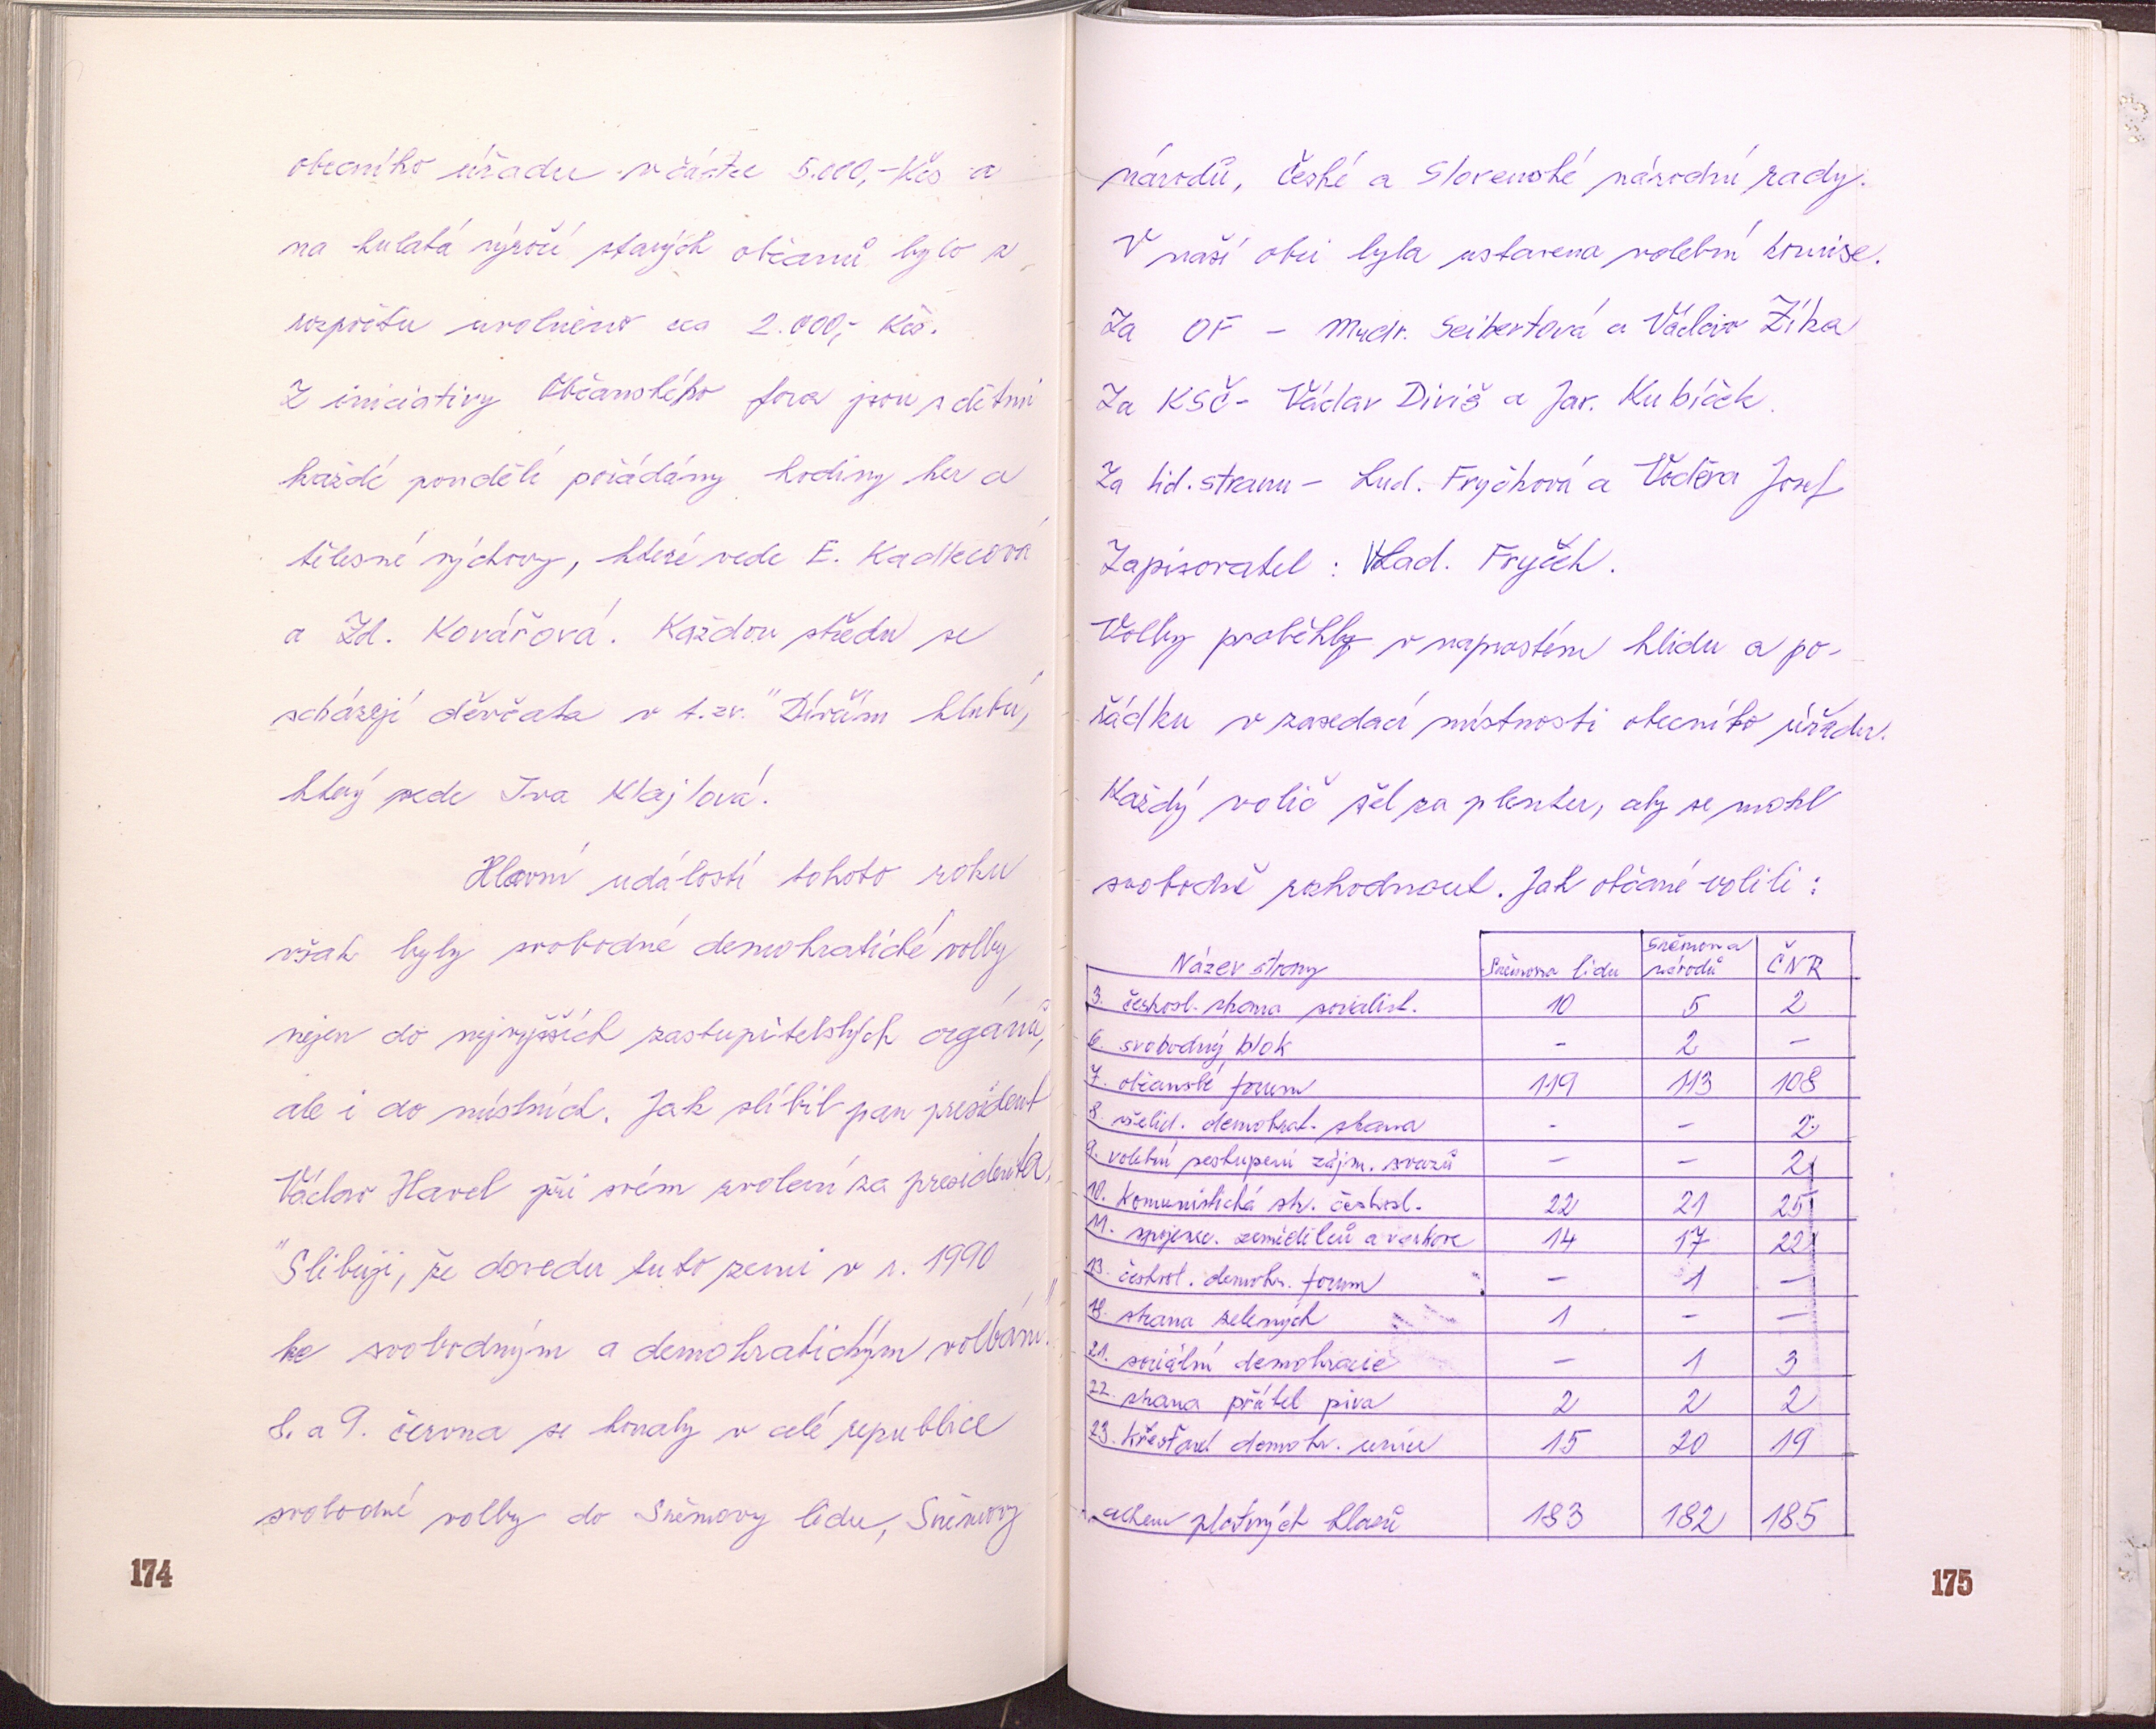 obecního úřadu v částce 5.000,- Kčs a
na kulatá výročí starých občanů bylo z
rozpočtu uvolněno cca 2.000,- Kčs.
Z iniciativy Občanského fora jsou s dětmi
každé pondělí pořádány hodiny her a
tělesné výchovy, které vede E. Kadlecová
a Zd. Kovářová. Každou středu se
scházejí děvčata v t.zv. "Dívčím klubu",
který vede Iva Klajlová.
Hlavní událostí tohoto roku
však byly svobodné demokratické volby
nejen do nejvyšších zastupitelských orgánů,
ale i do místních. Jak slíbil pan president
Václav Havel při svém zvolení za presidenta,
"Slibuji, že dovedu tuto zemi v r. 1990
ke svobodným a demokratickým volbám."
8. a 9. června se konaly v celé republice
svobodné volby do Sněmovy lidu, Sněmovy
174
národů, České a Slovenské národní rady.
V naší obci byla ustavena volební komise.
Za OF - Mudr. Seibertová a Václav Zíka
Za KSČ - Václav Diviš a Jar. Kubíček.
Za lid. stranu - Lud. Fryčková a Voděra Josef
Zapisovatel : Vlad. Fryček.
Volby proběhly v naprostém klidu a po-
řádku v zasedací místnosti obecního úřadu.
Každý volič šel za plentu, aby se mohl
svobodně rozhodnout. Jak občané volili :
Název strany Sněmovna lidu Sněmovna národů ČNR
3. českosl. strana socialist. 10 5 2
6. svobodný blok - 2 -
7. občanské forum 119 113 108
8. všelid. demokrat. strana - - 2
9. volební seskupení zájm. svazů - - 2
10. komunistická str. českosl. 22 21 25
11. spojenec. zemědělců a venkova 14 17 22
13. českosl. demokr. forum - 1 -
18. strana zelených 1 - -
21. sociální demokracie - 1 3
22. strana přátel piva 2 2 2
23. křesťand. demokr. unie 15 20 19
celkem platných hlasů 183 182 185
175